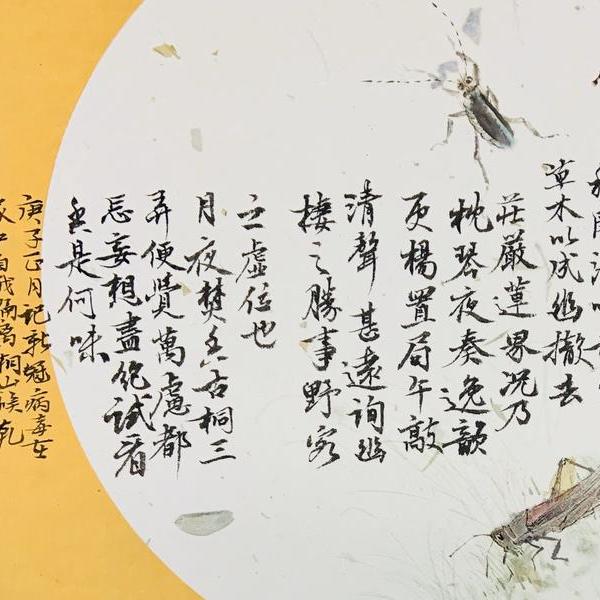 草木以成幽撤去
莊嚴蓮界况乃
枕琴夜奏逸韻
更楊置局午敲
清聲甚遠詢幽
棲之勝事野客
之虛位也
月夜焚香古桐三
弄便覺萬慮都
忘妄想盡絕試看
香是何味
庚子正月記新冠病毒在
自我隔離桐山